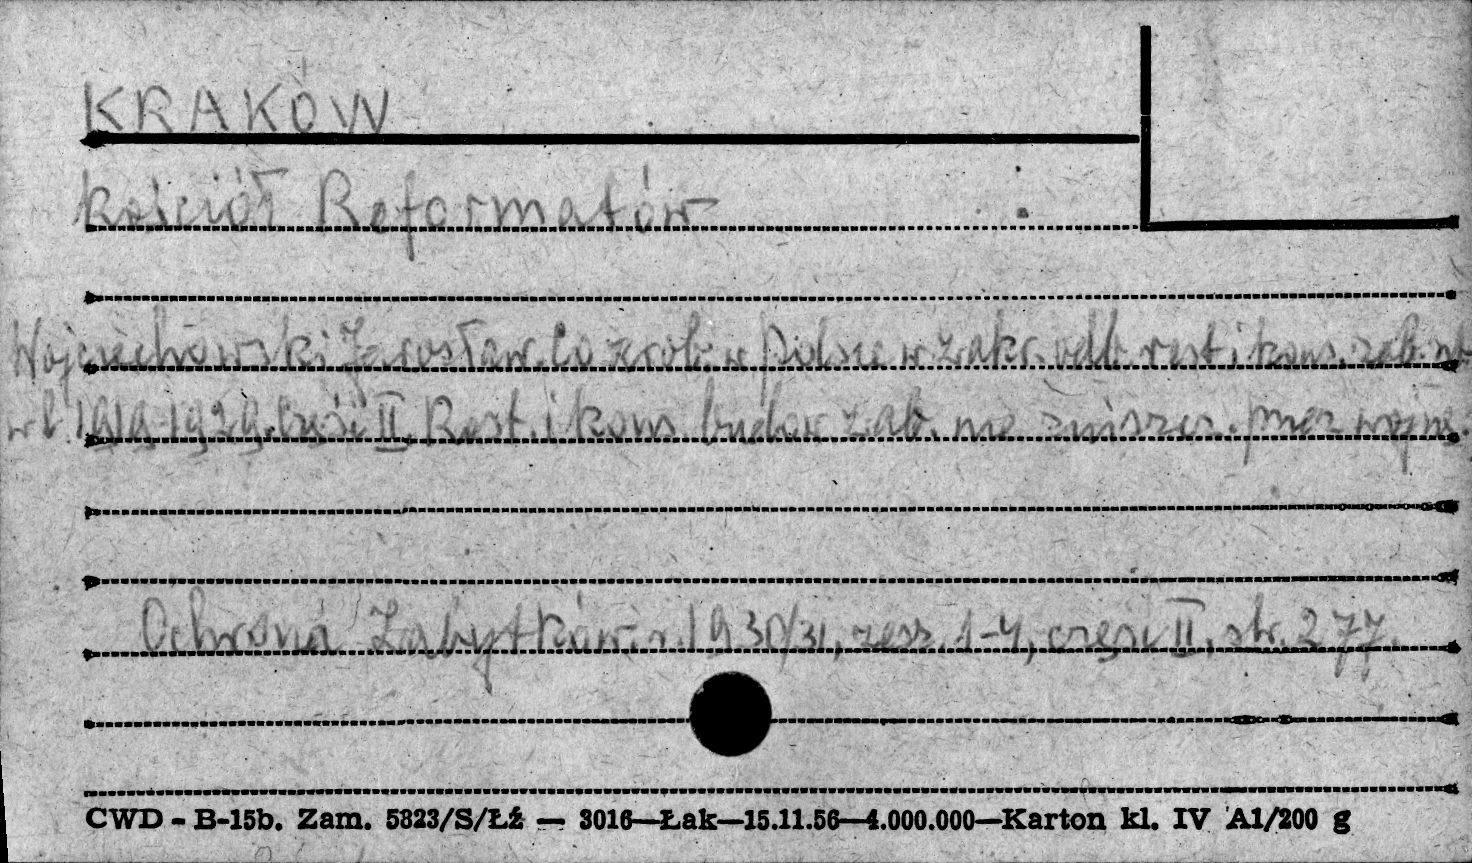 KRAKÓW
kościół Reformatów
Wojciechowski Jarosław. Co zrob. w Polsce w zakr. odb. rest. i kons. zab.
w l. 1919-1929. Część II. Rest. i kons. budow. zab. nie zniszcz. przez wojnę.
Ochrona Zabytków. r. 1930/31, zesz. 1-4, część II, str. 277.
CWD - B-15b. Zam. 5823/S/Łź — 3016—Łak—15.11.56—4.000.000—Karton kl. IV A1/200 g